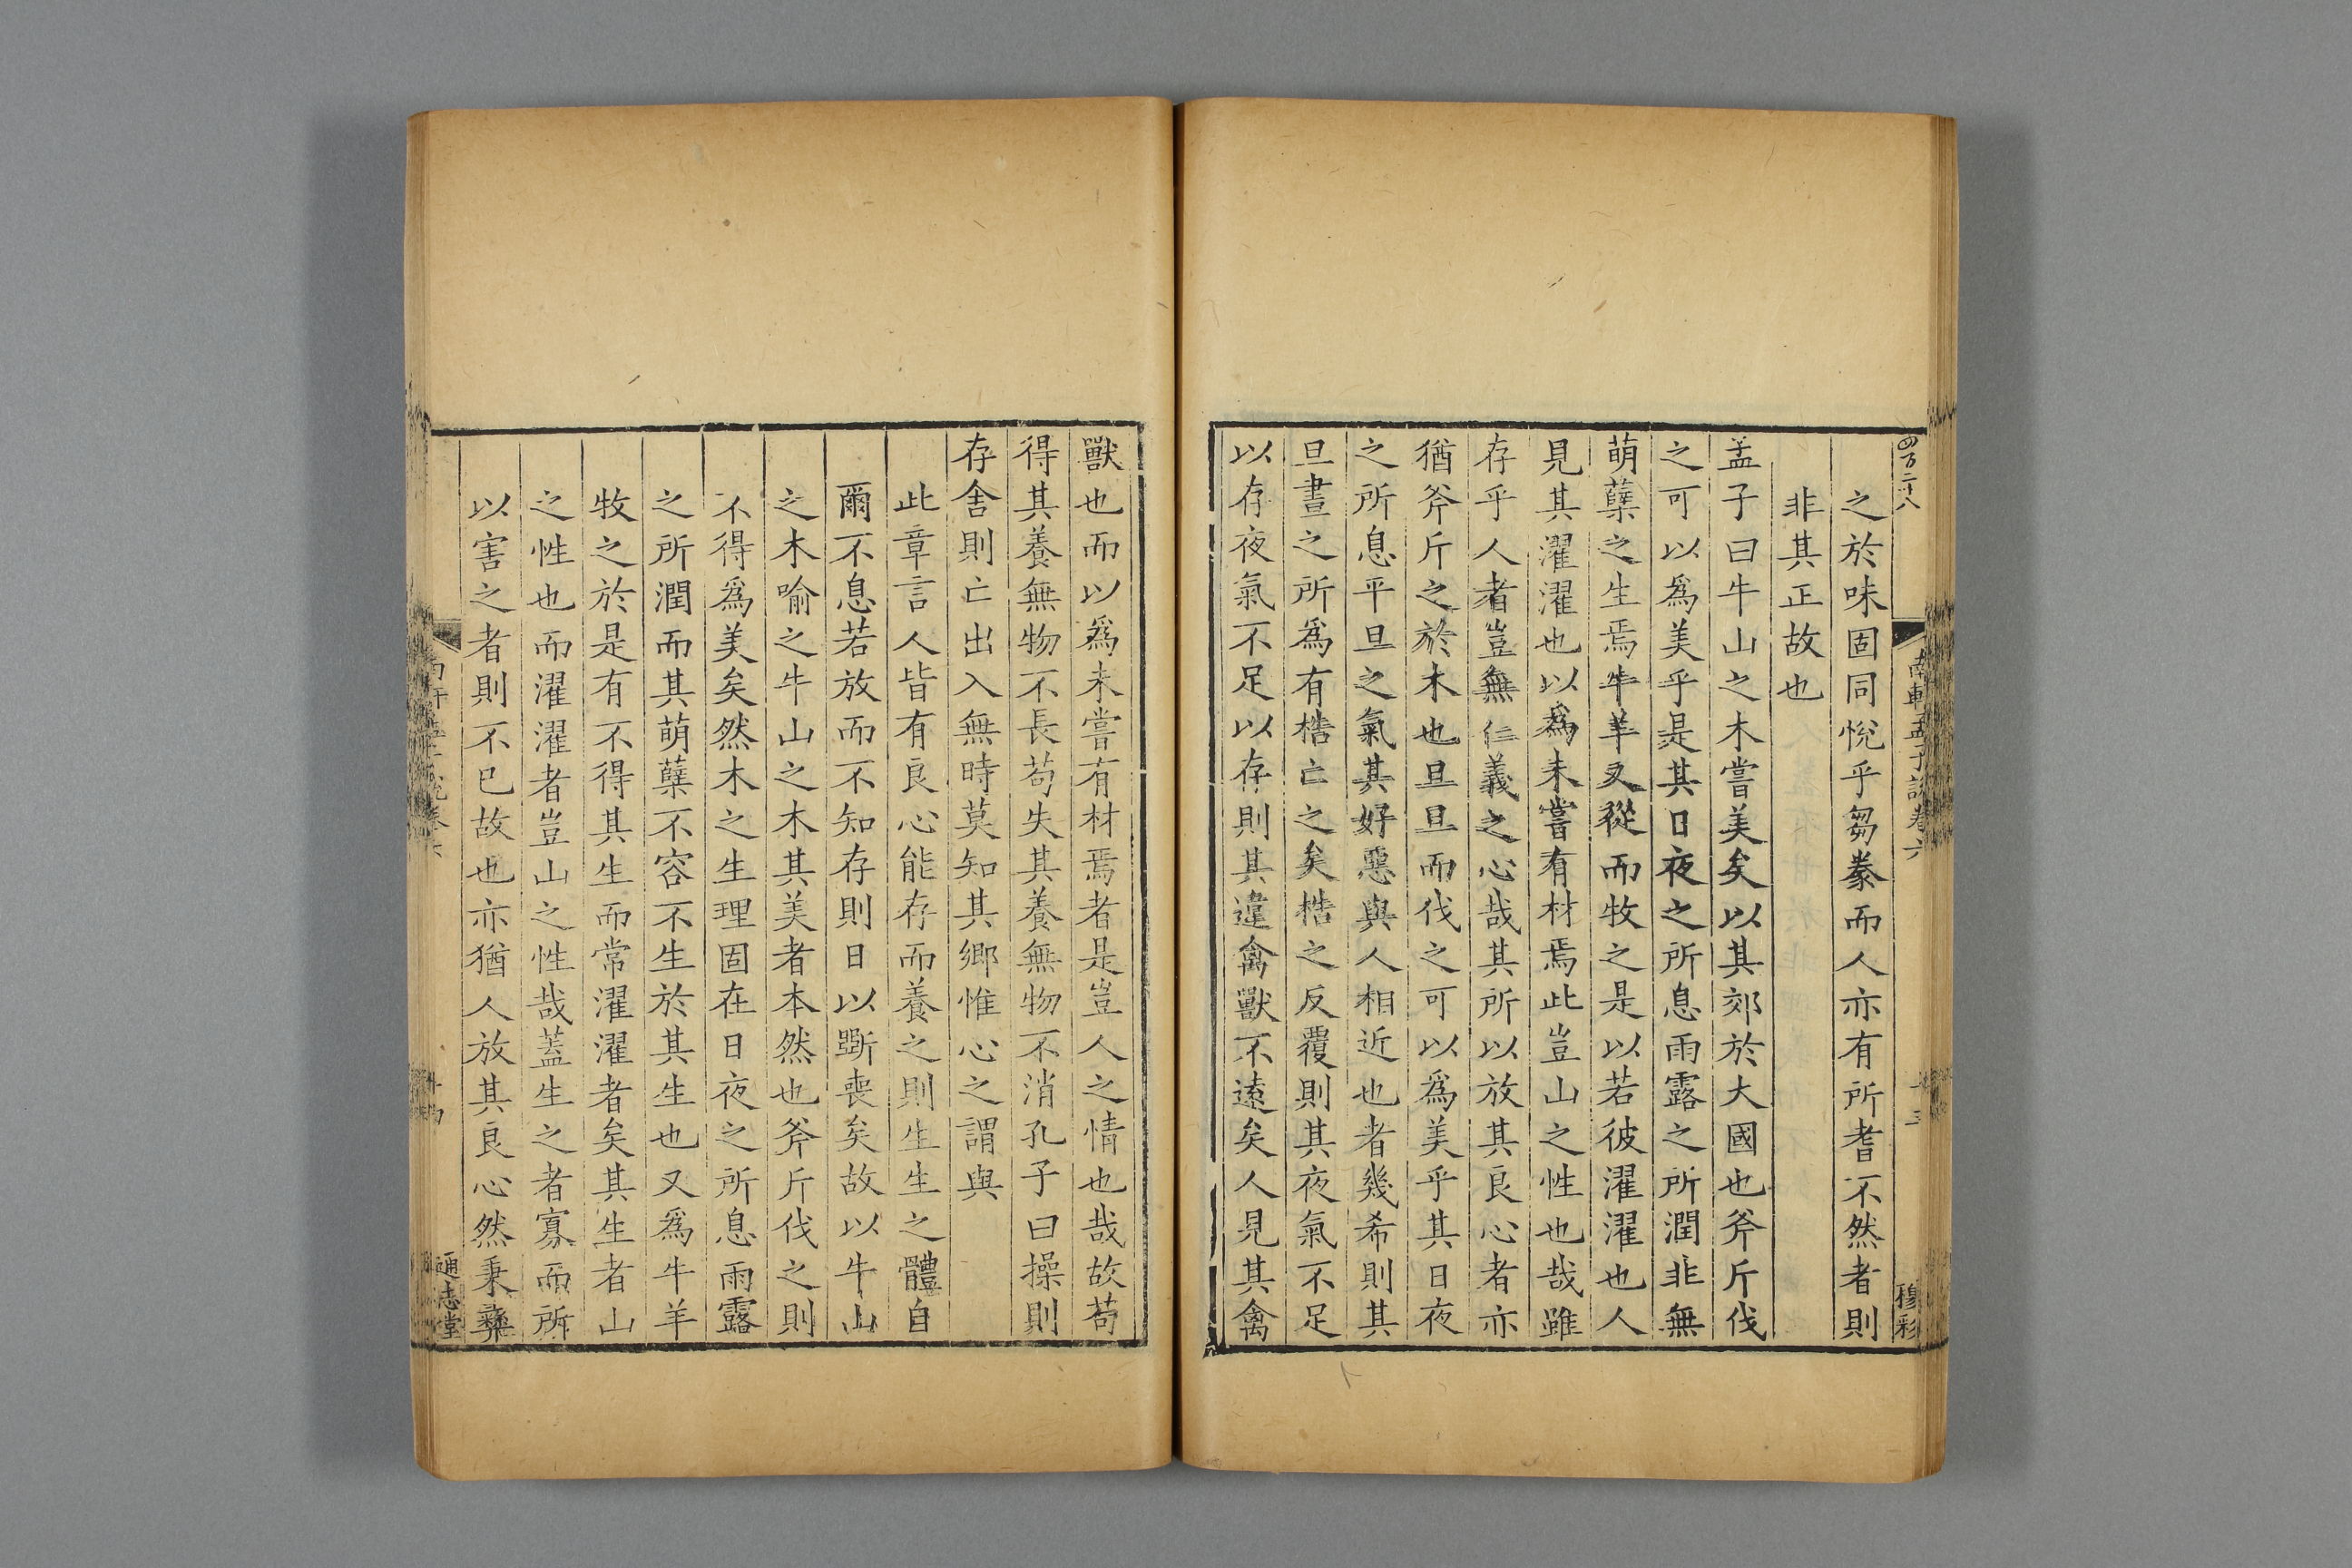 四百二十八
南軒孟子說卷六
十三
穆彩
之於味固同悅乎芻豢而人亦有所耆不然者則
非其正故也
孟子曰牛山之木嘗美矣以其郊於大國也斧斤伐
之可以為美乎是其日夜之所息雨露之所潤非無
萌蘖之生焉牛羊又從而牧之是以若彼濯濯也人
見其濯濯也以為未嘗有材焉此豈山之性也哉雖
存乎人者豈無仁義之心哉其所以放其良心者亦
猶斧斤之於木也旦旦而伐之可以為美乎其日夜
之所息平旦之氣其好惡與人相近也者幾希則其
旦晝之所為有梏亡之矣梏之反覆則其夜氣不足
以存夜氣不足以存則其違禽獸不遠矣人見其禽
獸也而以為未嘗有材焉者是豈人之情也哉故苟
得其養無物不長苟失其養無物不消孔子曰操則
存舍則亡出入無時莫知其鄉惟心之謂與
此章言人皆有良心能存而養之則生生之體自
爾不息若放而不知存則日以斲喪矣故以牛山
之木喻之牛山之木其美者本然也斧斤伐之則
不得為美矣然木之生理固在日夜之所息雨露
之所潤而其萌蘖不容不生於其生也又為牛羊
牧之於是有不得其生而常濯濯者矣其生者山
之性也而濯濯者豈山之性哉蓋生之者寡而所
以害之者則不已故也亦猶人放其良心然秉彝
通志堂